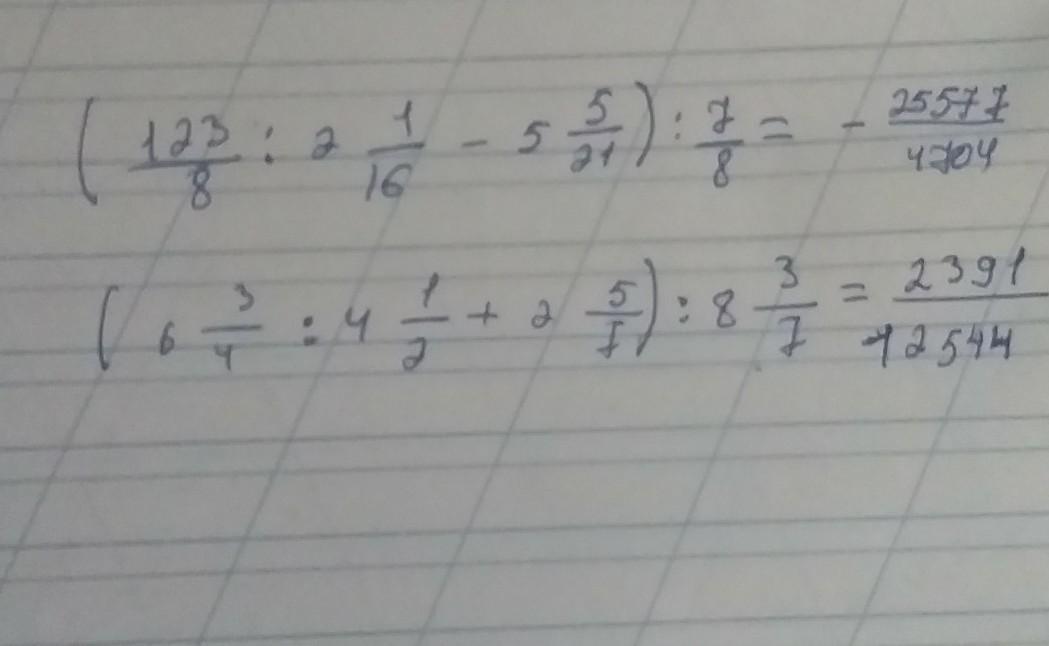 (123/8 : 2 1/16 - 5 5/21) : 7/8 = - 25577/4704
(6 3/4 : 4 1/2 + 2 5/7) : 8 3/7 = 2391/12544